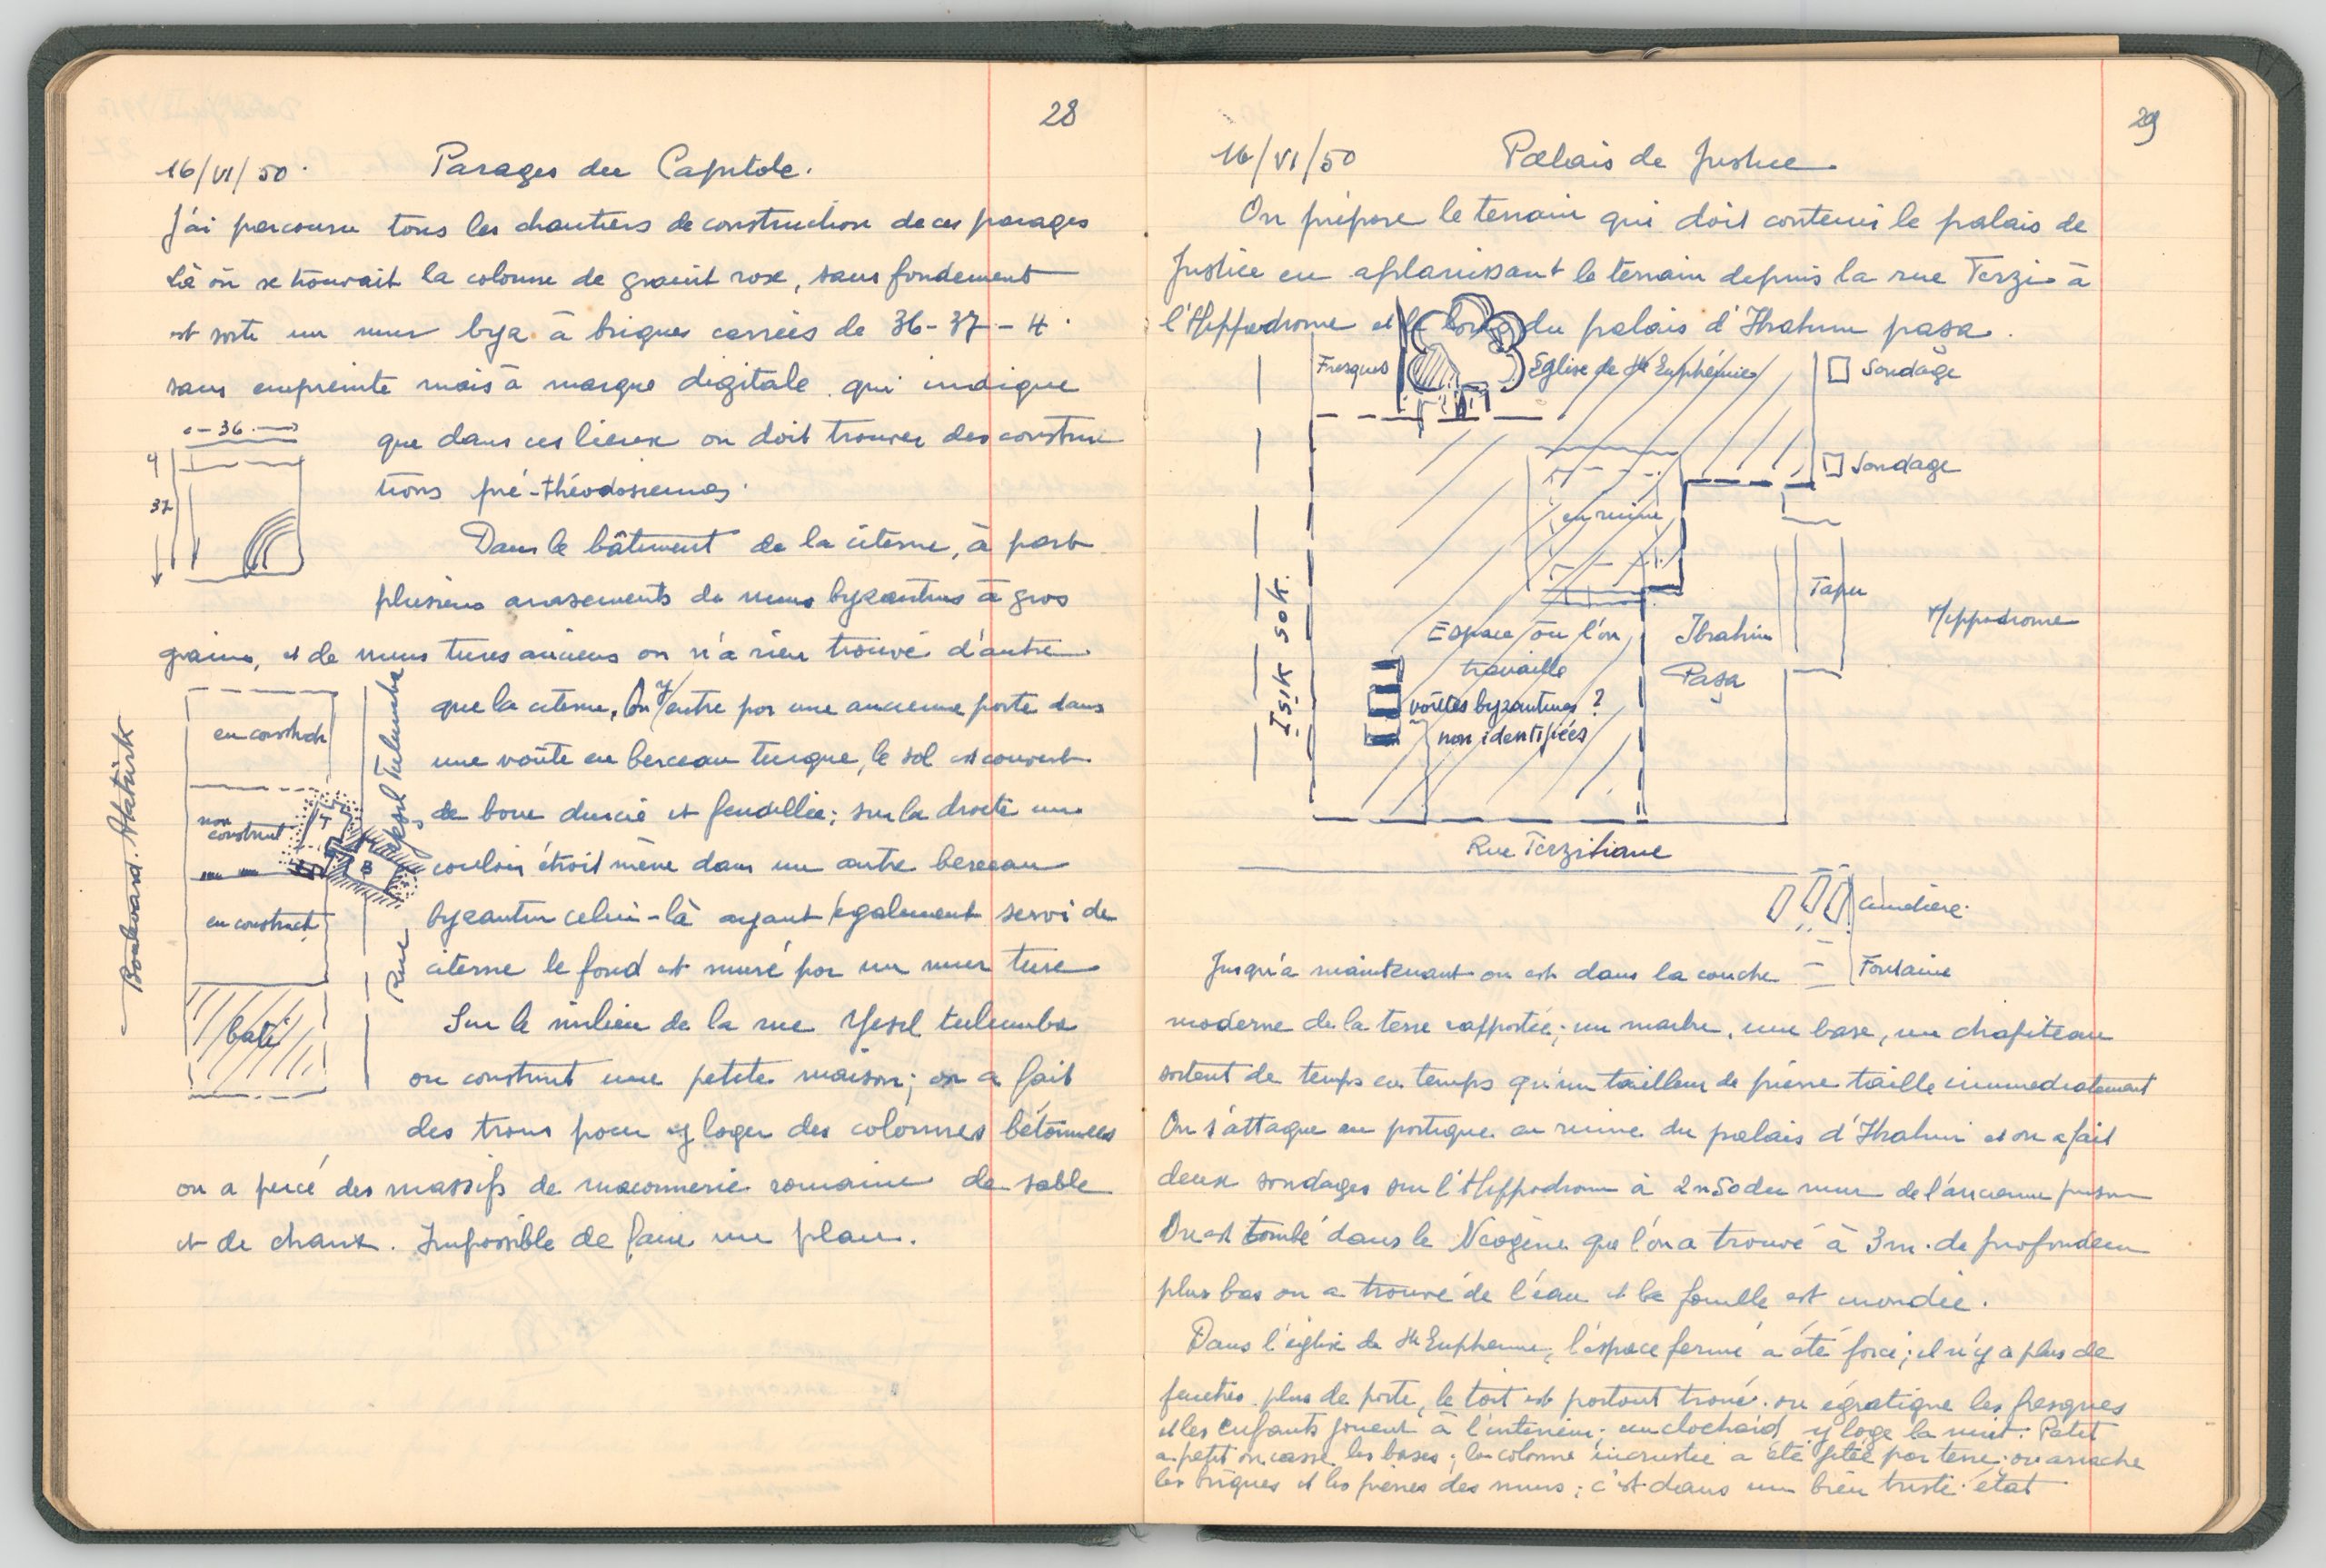 28
16/VI/50. Parages du Capitole.
J'ai parcouru tous les chantiers de construction de ces parages
Là où se trouvait la colonne de granit rose, sans fondement
est sorti un mur byz. à briques carrées de 36-37-4.
sans empreinte mais à marque digitale qui indique
que dans ces lieux on doit trouver des construc
tions pré-théodosiennes.
36
4
37
Dans le bâtiment de la citerne, à part
plusieurs arasements de murs byzantins à gros
grains, et de murs turcs anciens on n'a rien trouvé d'autre
que la citerne. On y entre par une ancienne porte dans
une voûte en berceau turque, le sol est couvert
de boue durcie et fendillée; sur la droite un
couloir étroit mène dans un autre berceau
byzantin celui-là ayant également servi de
citerne le fond est muré par un mur turc
Sur le milieu de la rue Yeşil tulumba
on construit une petite maison; on a fait
des trous pour y loger des colonnes bétonnées
on a percé des massifs de maçonnerie romaine de sable
et de chaux. Impossible de faire un plan.
Boulevard Atatürk
en construct
non construit
T
B
en construct
bati
Rue Yeşil Tulumba
29
16/VI/50 Palais de Justice
On prépare le terrain qui doit contenir le palais de
Justice en aplanissant le terrain depuis la rue Terzi à
l'Hippodrome et le long du palais d'Ibrahim paşa.
Fresques
Eglise de Ste Euphémie
Sondage
Sondage
en ruine
Tapu
Hippodrome
Işık sok.
Espace où l'on
travaille
Ibrahim
Paşa
voûtes byzantines?
non identifiées
Rue Terzihane
Cimetière
Fontaine
Jusqu'à maintenant on est dans la couche
moderne de la terre rapportée; un marbre, une base, un chapiteau
sortent de temps en temps qu'un tailleur de pierre taille immédiatement
On s'attaque au portique en ruine du palais d'Ibrahim et on a fait
deux sondages sur l'Hippodrome à 2m50 du mur de l'ancienne prison
On est tombé dans le Néogène que l'on a trouvé à 3m. de profondeur
plus bas on a trouvé de l'eau et la fouille est inondée.
Dans l'église de Ste Euphemie, l'espace fermé a été forcé; il n'y a plus de
fenêtres plus de porte, le toit est partout troué. on égratigne les fresques
et les enfants jouent à l'intérieur; un clochard y loge la nuit. Petit
a petit on casse les bases; la colonne incrustée a été jetée par terre; on arrache
les briques et les pierres des murs; c'est dans un bien triste état